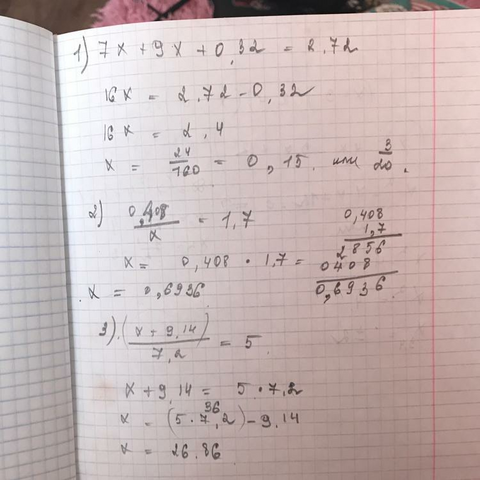 1) 7x + 9x + 0,32 = 2.72
16x = 2.72 - 0,32
16x = 2,4
x = 24/160 = 0,15. или 3/20.
2) 0,408/x = 1,7
x = 0,408 · 1,7 =
x = 0,6936
0,408
1,7
2856
0408
0,6936
3). (x + 9,14)/7,2 = 5
x + 9,14 = 5 · 7,2
36
x = (5 · 7,2) - 9,14
x = 26.86